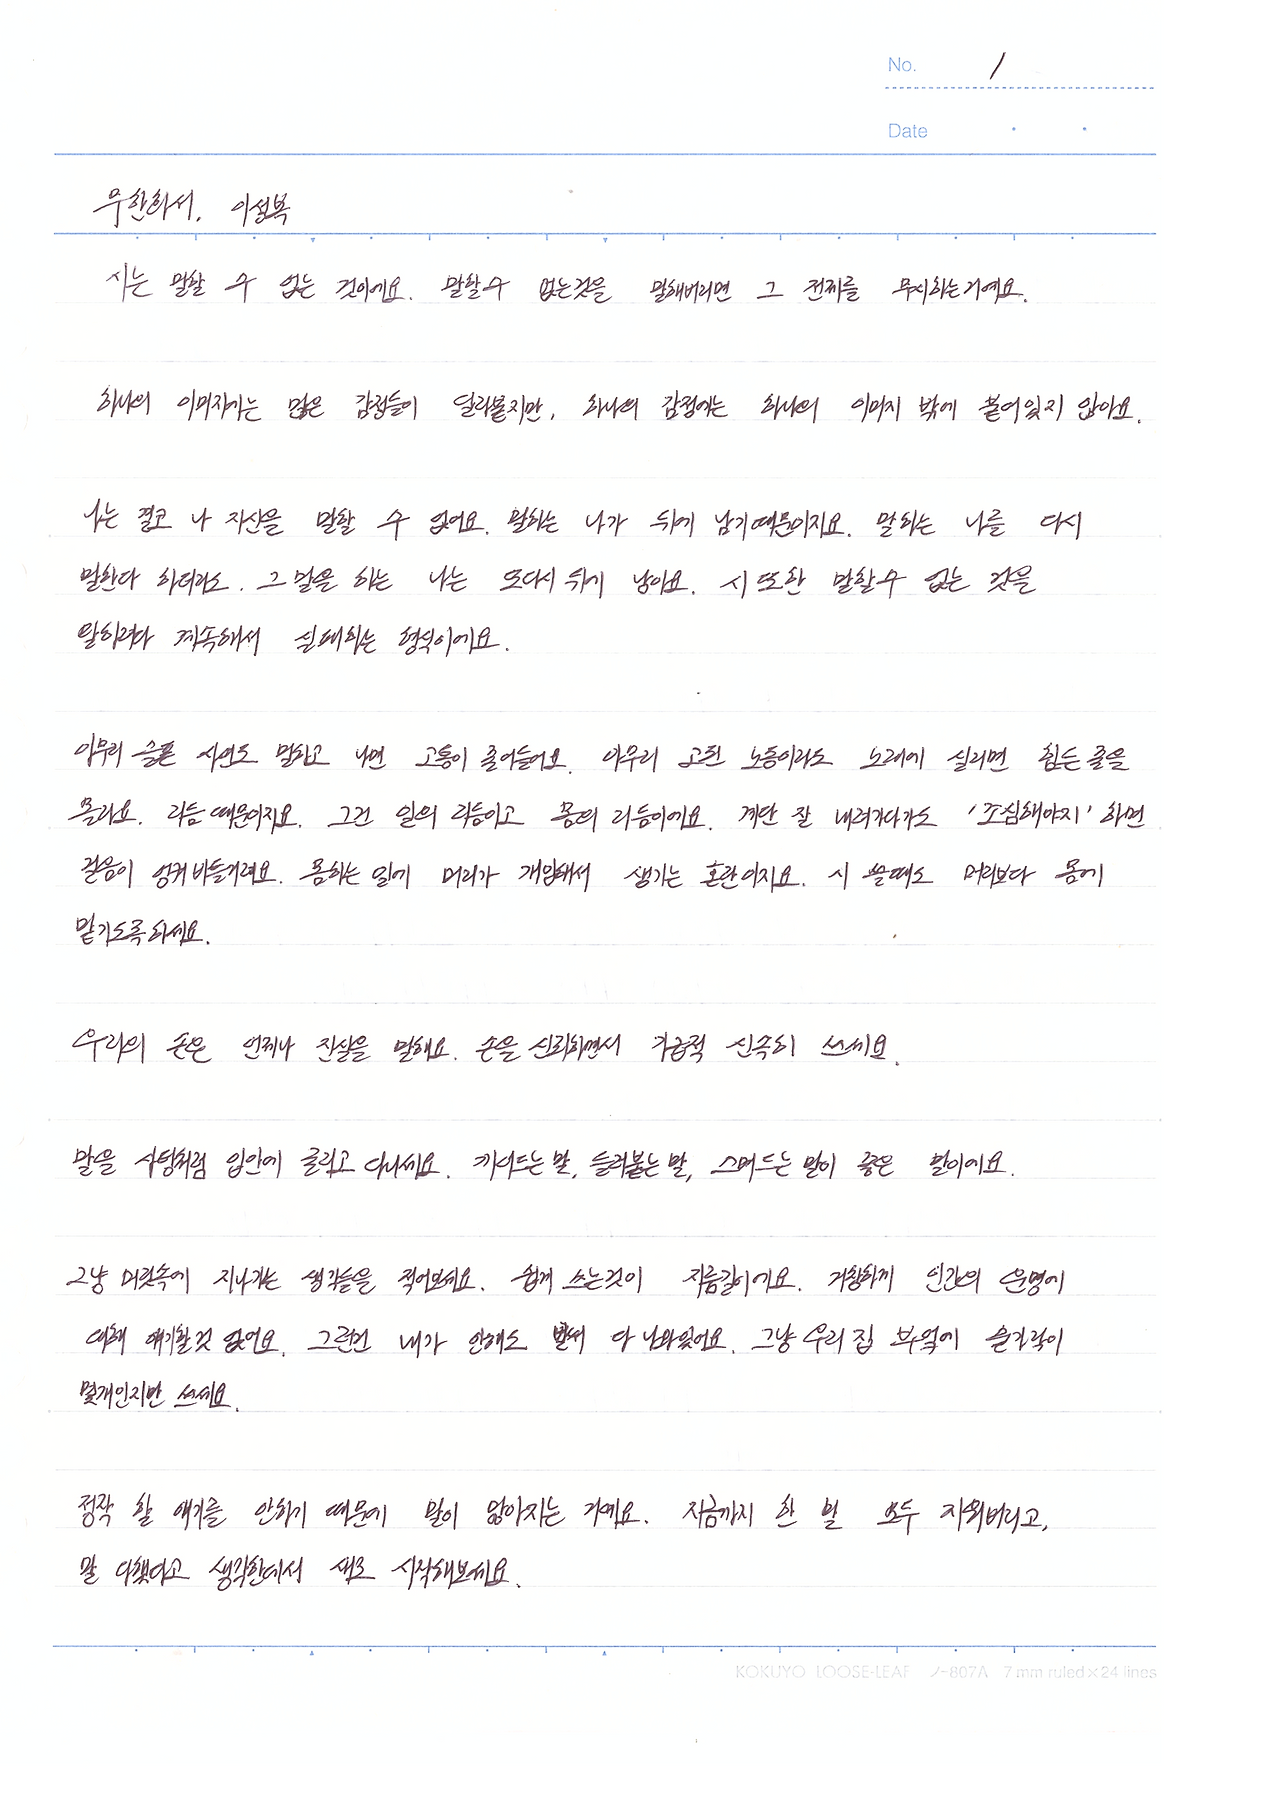 No. 1
Date
무한화서. 이성복
시는 말할 수 없는 것이에요. 말할수 없는것을 말해버리면 그 전제를 무시하는거예요.
하나의 이미지에는 많은 감정들이 달라붙지만, 하나의 감정에는 하나의 이미지 밖에 붙어있지 않아요.
나는 결코 나 자신을 말할 수 없어요. 말하는 나가 뒤에 남기때문이지요. 말하는 나를 다시
말한다 하더라도. 그 말을 하는 나는 또다시 뒤에 남아요. 시 또한 말할수 없는 것을
말하려다 계속해서 실패하는 형식이에요.
아무리 슬픈 사연도 말하고 나면 고통이 줄어들어요. 아무리 고된 노동이라도 노래에 실리면 힘든줄을
몰라요. 리듬 때문이지요. 그건 일의 리듬이고 몸의 리듬이에요. 계단 잘 내려가다가도 '조심해야지' 하면
걸음이 엉켜 비틀거려요. 몸하는 일에 머리가 개입해서 생기는 혼란이지요. 시 쓸때도 머리보다 몸에
맡기도록하세요.
우리의 손은 언제나 진실을 말해요. 손을 신뢰하면서 가급적 신속히 쓰세요.
말을 사탕처럼 입안에 굴리고 다니세요. 키어드는 말, 들러붙는 말, 스며드는 말이 좋은 말이에요.
그냥 머릿속에 지나가는 생각들을 적어보세요. 쉽게 쓰는것이 지름길이에요. 거창하게 인간의 운명에
대해 얘기할것 없어요. 그런건 내가 안해도 벌써 다 나와있어요. 그냥 우리 집 부엌에 숟가락이
몇개인지만 쓰세요.
정작 할 얘기를 안하기 때문에 말이 많아지는 거예요. 지금까지 한 말 모두 지워버리고,
말 다했다고 생각한데서 새로 시작해보세요.
KOKUYO LOOSE-LEAF ノ-807A 7 mm ruled×24 lines